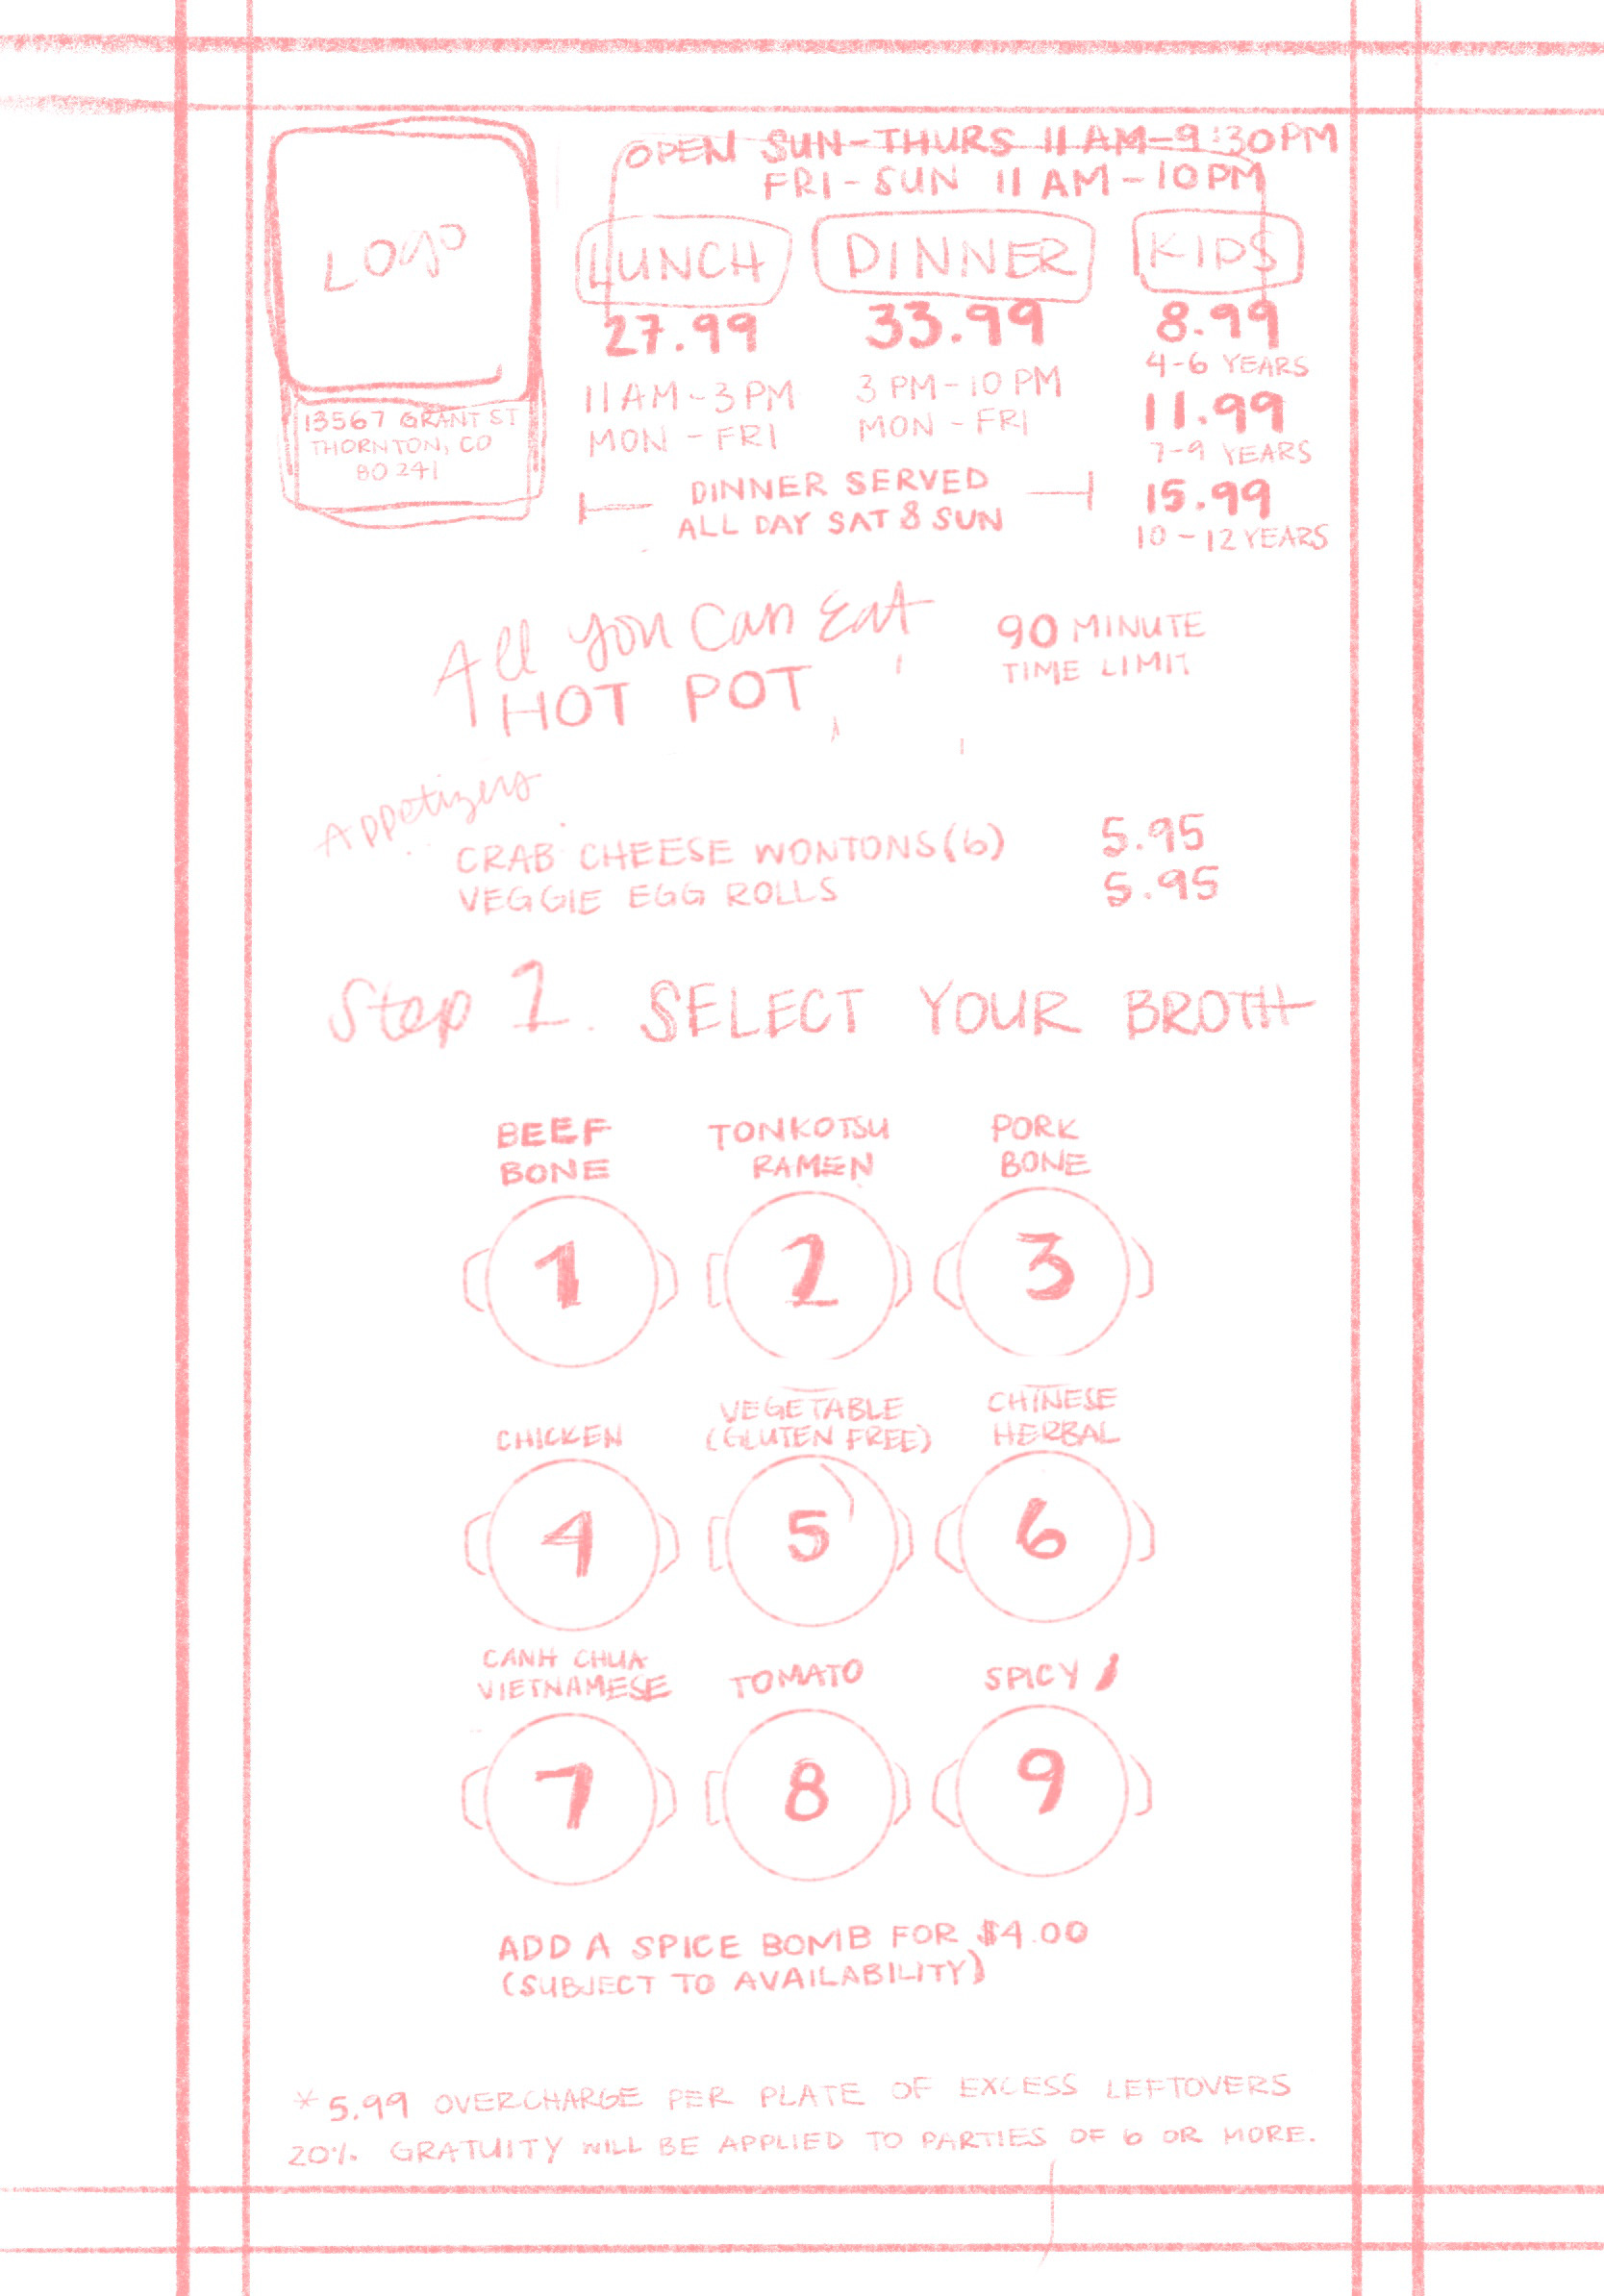 Logo
13567 GRANT ST
THORNTON, CO
80241
OPEN SUN-THURS 11 AM-9:30PM
FRI-SUN 11 AM-10PM
LUNCH
27.99
11AM-3PM
MON-FRI
DINNER
33.99
3 PM-10 PM
MON-FRI
DINNER SERVED
ALL DAY SAT & SUN
KIDS
8.99
4-6 YEARS
11.99
7-9 YEARS
15.99
10-12 YEARS
All you Can Eat
HOT POT
90 MINUTE
TIME LIMIT
Appetizers
CRAB CHEESE WONTONS(6) 5.95
VEGGIE EGG ROLLS 5.95
Step 1. SELECT YOUR BROTH
BEEF
BONE
1
TONKOTSU
RAMEN
2
PORK
BONE
3
CHICKEN
4
VEGETABLE
(GLUTEN FREE)
5
CHINESE
HERBAL
6
CANH CHUA
VIETNAMESE
7
TOMATO
8
SPICY
9
ADD A SPICE BOMB FOR $4.00
(SUBJECT TO AVAILABILITY)
*5.99 OVERCHARGE PER PLATE OF EXCESS LEFTOVERS
20% GRATUITY WILL BE APPLIED TO PARTIES OF 6 OR MORE.